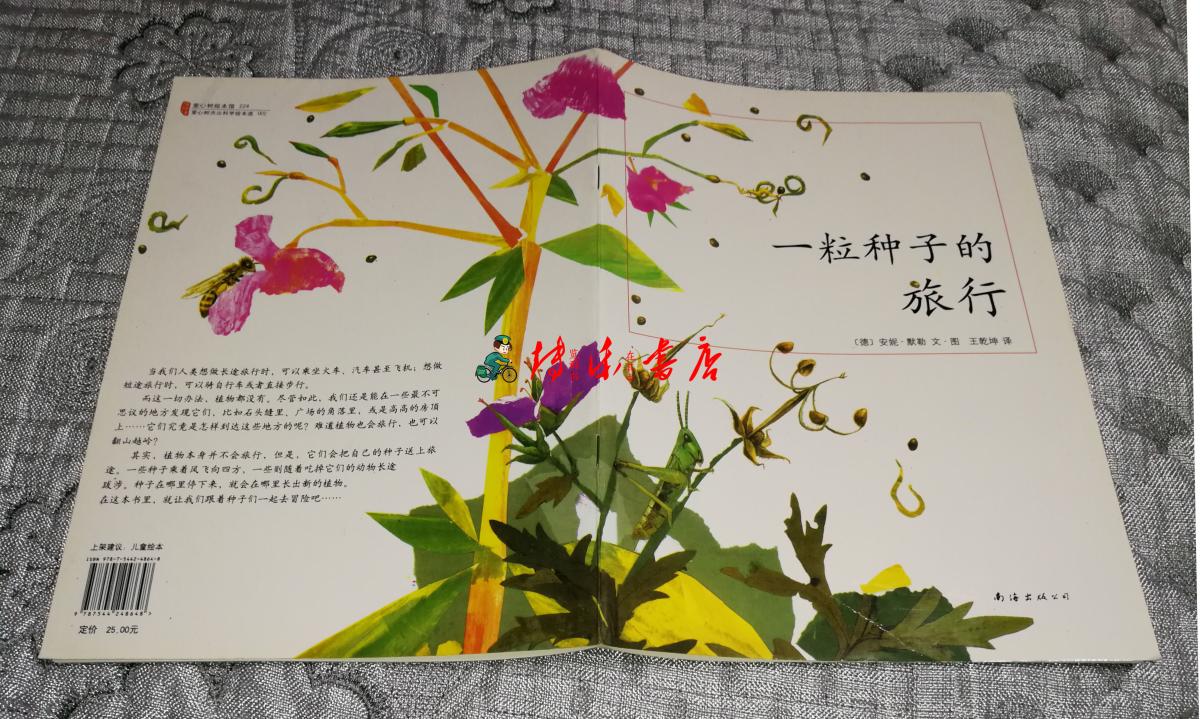 爱心树绘本馆 224
爱心树杰出科学绘本选 005
一粒种子的
旅行
〔德〕安妮·默勒 文·图 王乾坤 译
书店
当我们人类想做长途旅行时,可以乘坐火车、汽车甚至飞机;想做
短途旅行时,可以骑自行车或者直接步行。
而这一切办法,植物都没有。尽管如此,我们还是能在一些最不可
思议的地方发现它们,比如石头缝里、广场的角落里,或是高高的房顶
上……它们究竟是怎样到达这些地方的呢?难道植物也会旅行,也可以
翻山越岭?
其实,植物本身并不会旅行,但是,它们会把自己的种子送上旅
途。一些种子乘着风飞向四方,一些则随着吃掉它们的动物长途
跋涉。种子在哪里停下来,就会在哪里长出新的植物。
在这本书里,就让我们跟着种子们一起去冒险吧……
上架建议:儿童绘本
ISBN 978-7-5442-4864-8
9 787544 248648 >
定价 25.00元
南海出版公司